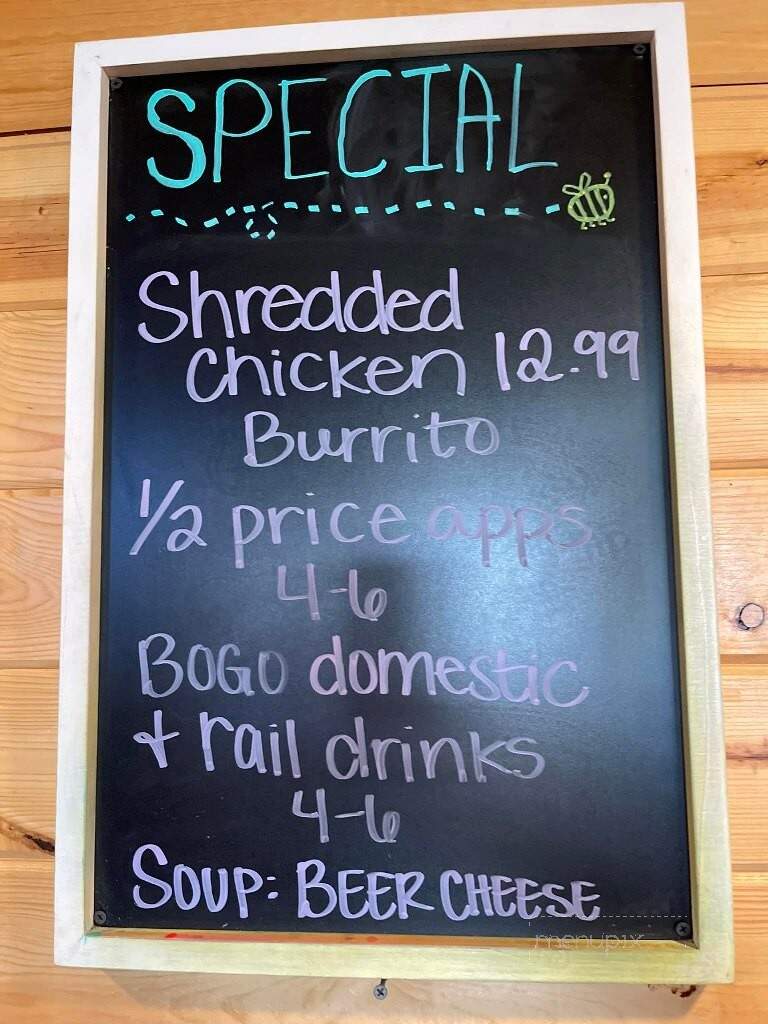 SPECIAL
Shredded
Chicken 12.99
Burrito
1/2 price apps
4-6
BOGO domestic
+ rail drinks
4-6
SOUP: BEER CHEESE
menupix